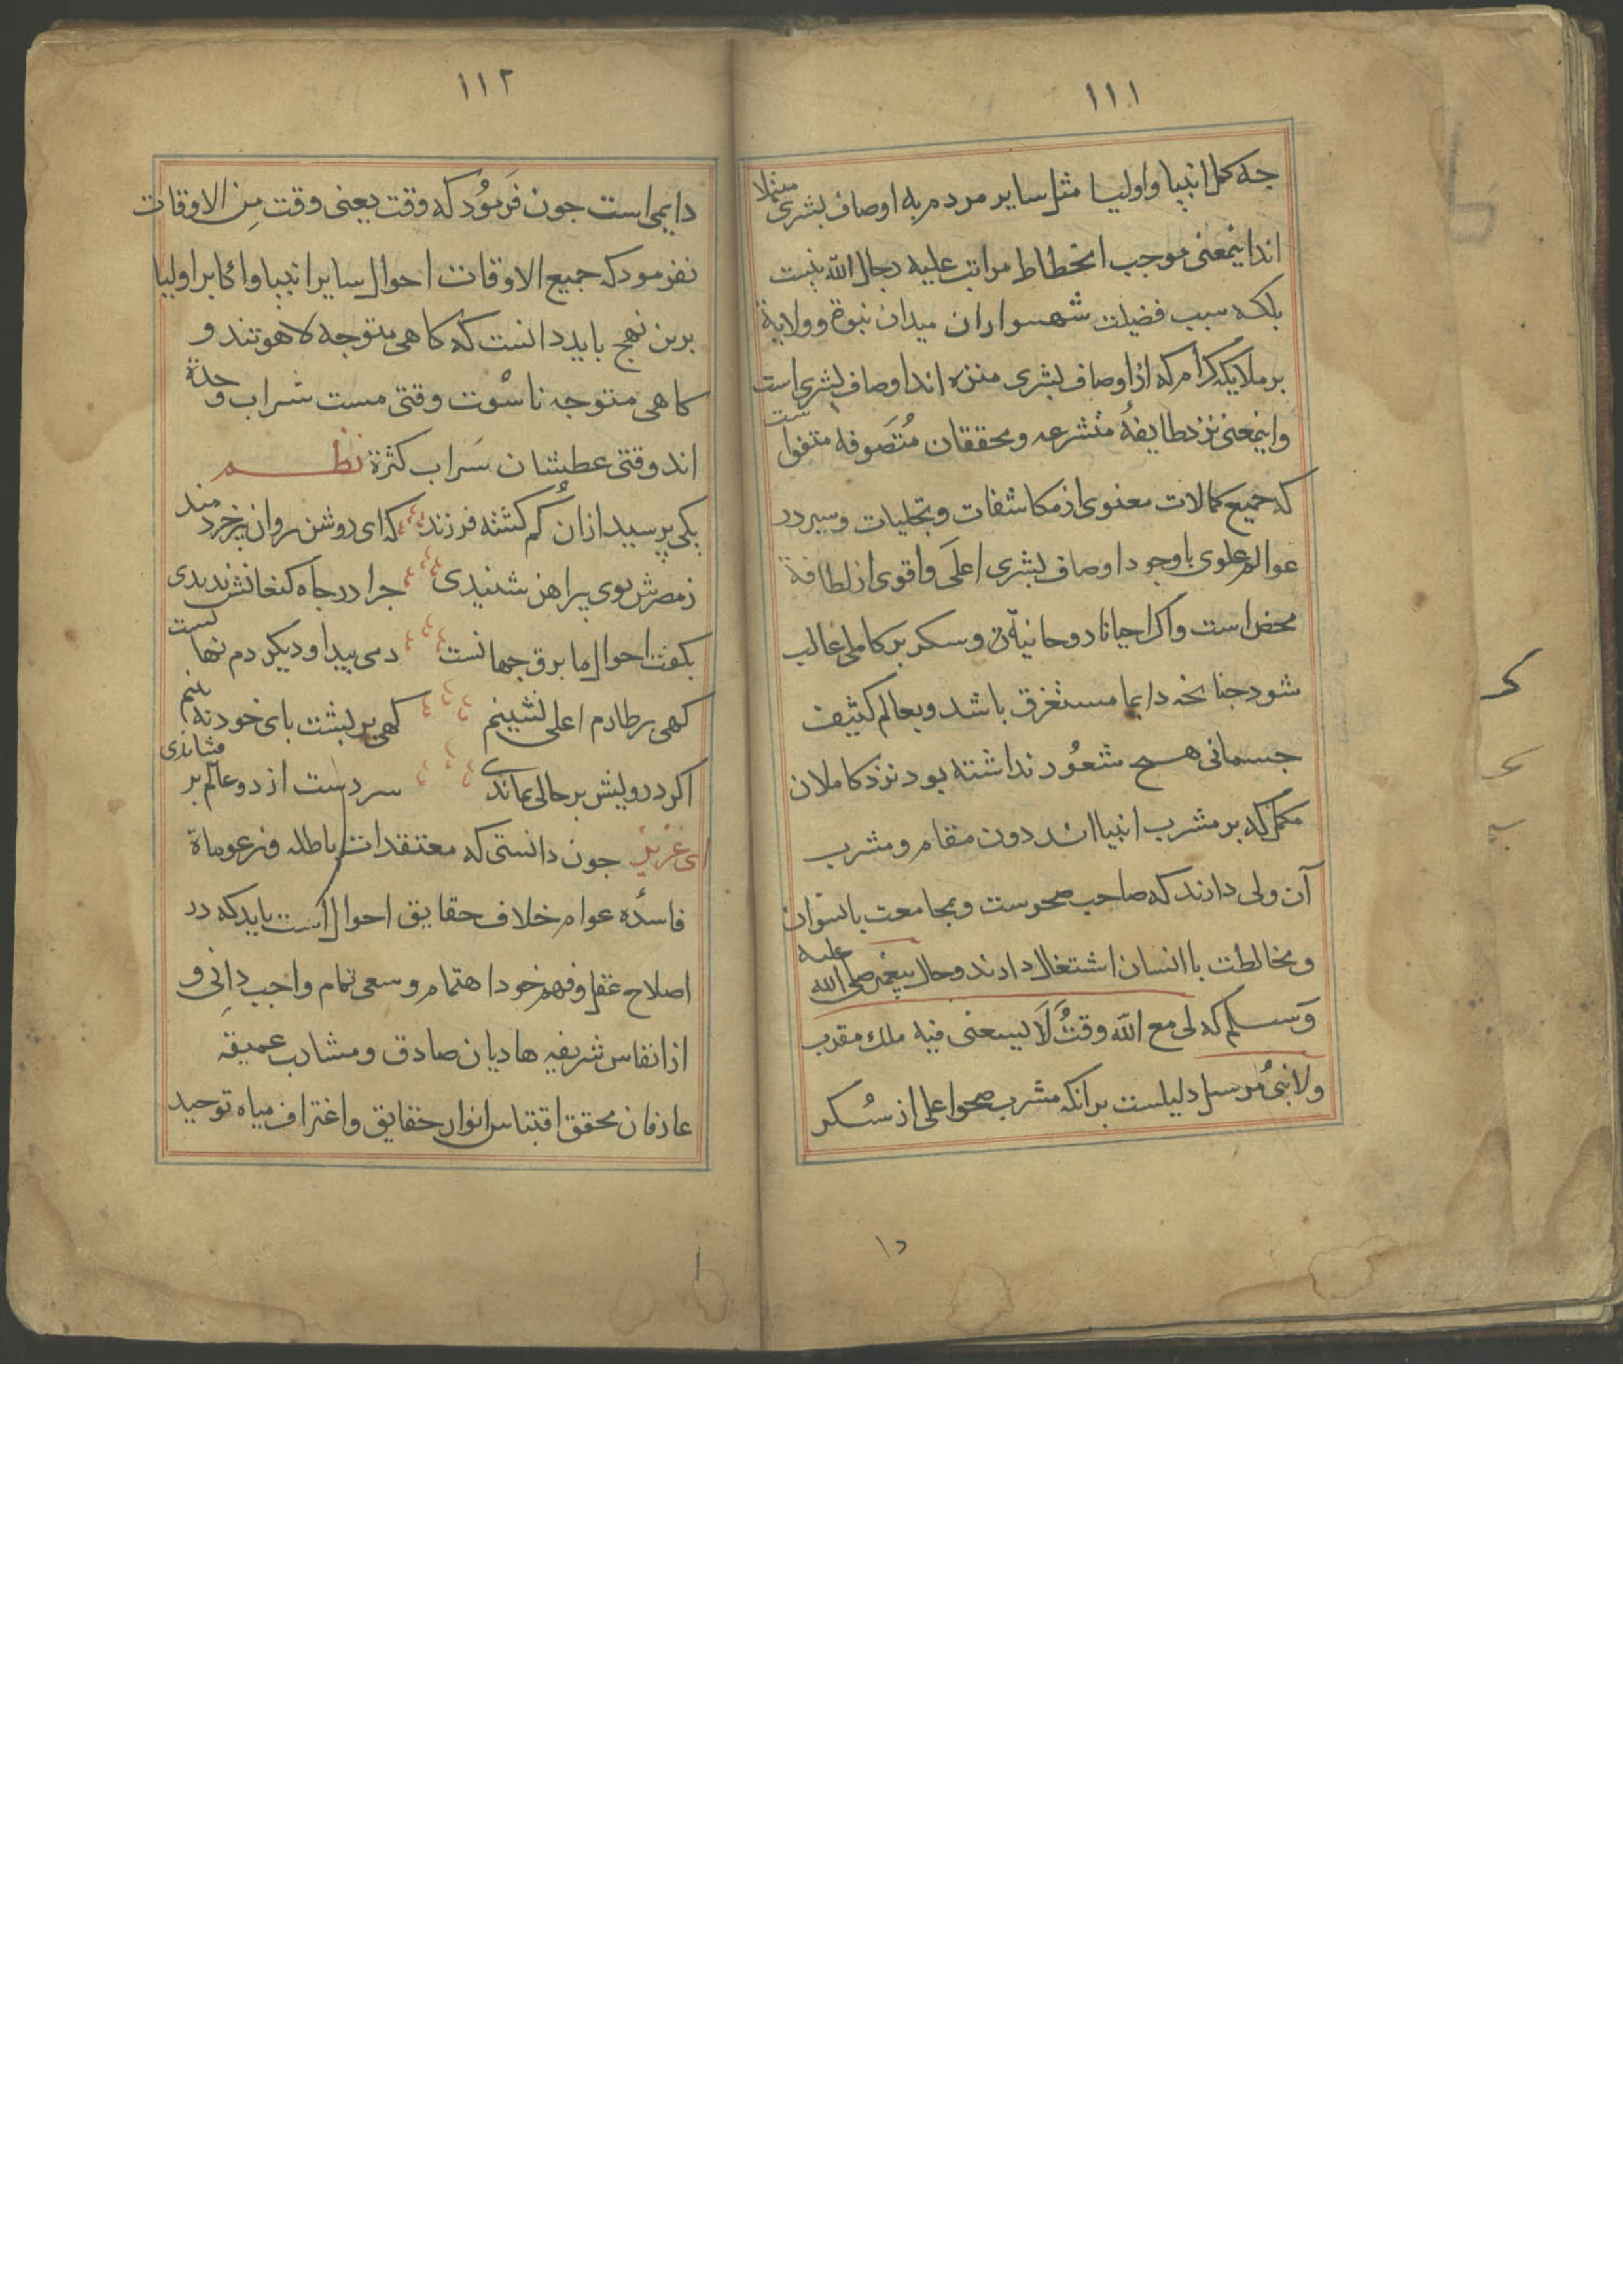 ١١١
جه کمل انبیا و اولیا مثل سایر مردم به اوصاف بشری مبتلا
اند اینمعنی موجب انحطاط مراتب علیه رجال الله نیست
بلکه سبب فضیلت شهسواران میدان نبوة و ولایة
بر ملایکه کرام که از اوصاف بشری منزه اند اوصاف بشری است
و اینمعنی نزد طایفهٔ متشرعه و محققان مُتَصَوفه متفق است
که جمیع کمالات معنوی از مکاشفات و تجلیات و سیر در
عوالم علوی با وجود اوصاف بشری اعلَی و اقوی از لطافة
محض است و اکر احیانا روحانیة و سکر بر کاملی غالب
شود جنانجه دایما مستغرق باشد و بعالم کثیف
جسمانی هیح شعُور نداشته بود نزد کاملان
مکمل که بر مشرب انبیااند دون مقام و مشرب
آن ولی دارند که صاحب صحوست و مجامعت با نسوان
و مخالطت با انسان اشتغال دارند و حال پیغمبر صلی الله علیه
وَسلم که لی مع الله وقتٌ لَا یسعنی فیه ملك مقرب
ولا نبیٌ مُرسل دلیلست برانکه مشرب صحو اعلی از سُکر
١١٢
دایمی است جون فَرمُود که وقت یعنی وقت مِن الاوقات
نفرمود که جمیع الاوقات احوال سایر انبیا و اکابر اولیا
برین نهج باید دانست که کاهی متوجه لاهوتند و
کاهی متوجه ناسُوت وقتی مست شراب وحدة
اند وقتی عطشان سَراب کثرة نظم
یکی پرسید ازان کُم کشته فرزند که ای روشن روان پیر خردمند
ز مصرش بوی پیراهن شنیدی جرا در جاه کنعانش ندیدی
بکفت احوال ما برق جهانست دمی پیدا و دیکر دم نهانست
کهی بر طارم اعلی نشینم کهی بر پشت پای خود نه بینم
اکر درویش بر حالی بماندی سر دست از دو عالم بر فشاندی
ای عزیز جون دانستی که معتقدات باطله و مزعوماة
فاسدهٔ عوام خلاف حقایق احوال است باید که در
اصلاح عقل و فهم خود اهتمام و سعی تمام واجب دانِی و
از انفاس شریفه هادیان صادق و مشارب عمیقه
عارفان محقق اقتباس انوار حقایق و اغتراف میاه توحید